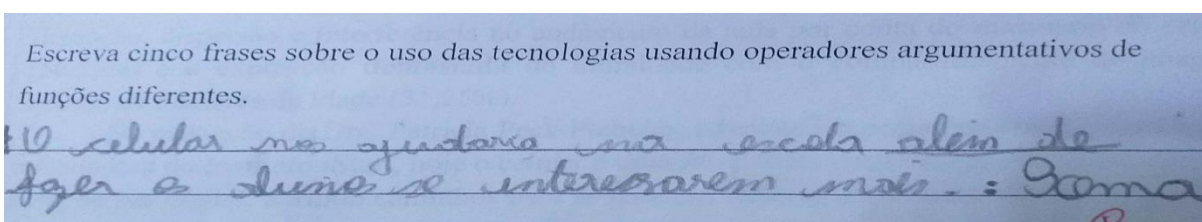 Escreva cinco frases sobre o uso das tecnologias usando operadores argumentativos de
funções diferentes.
1) O celular nos ajudaria na escola alem de
fazer os alunos se interessarem mais. : Soma